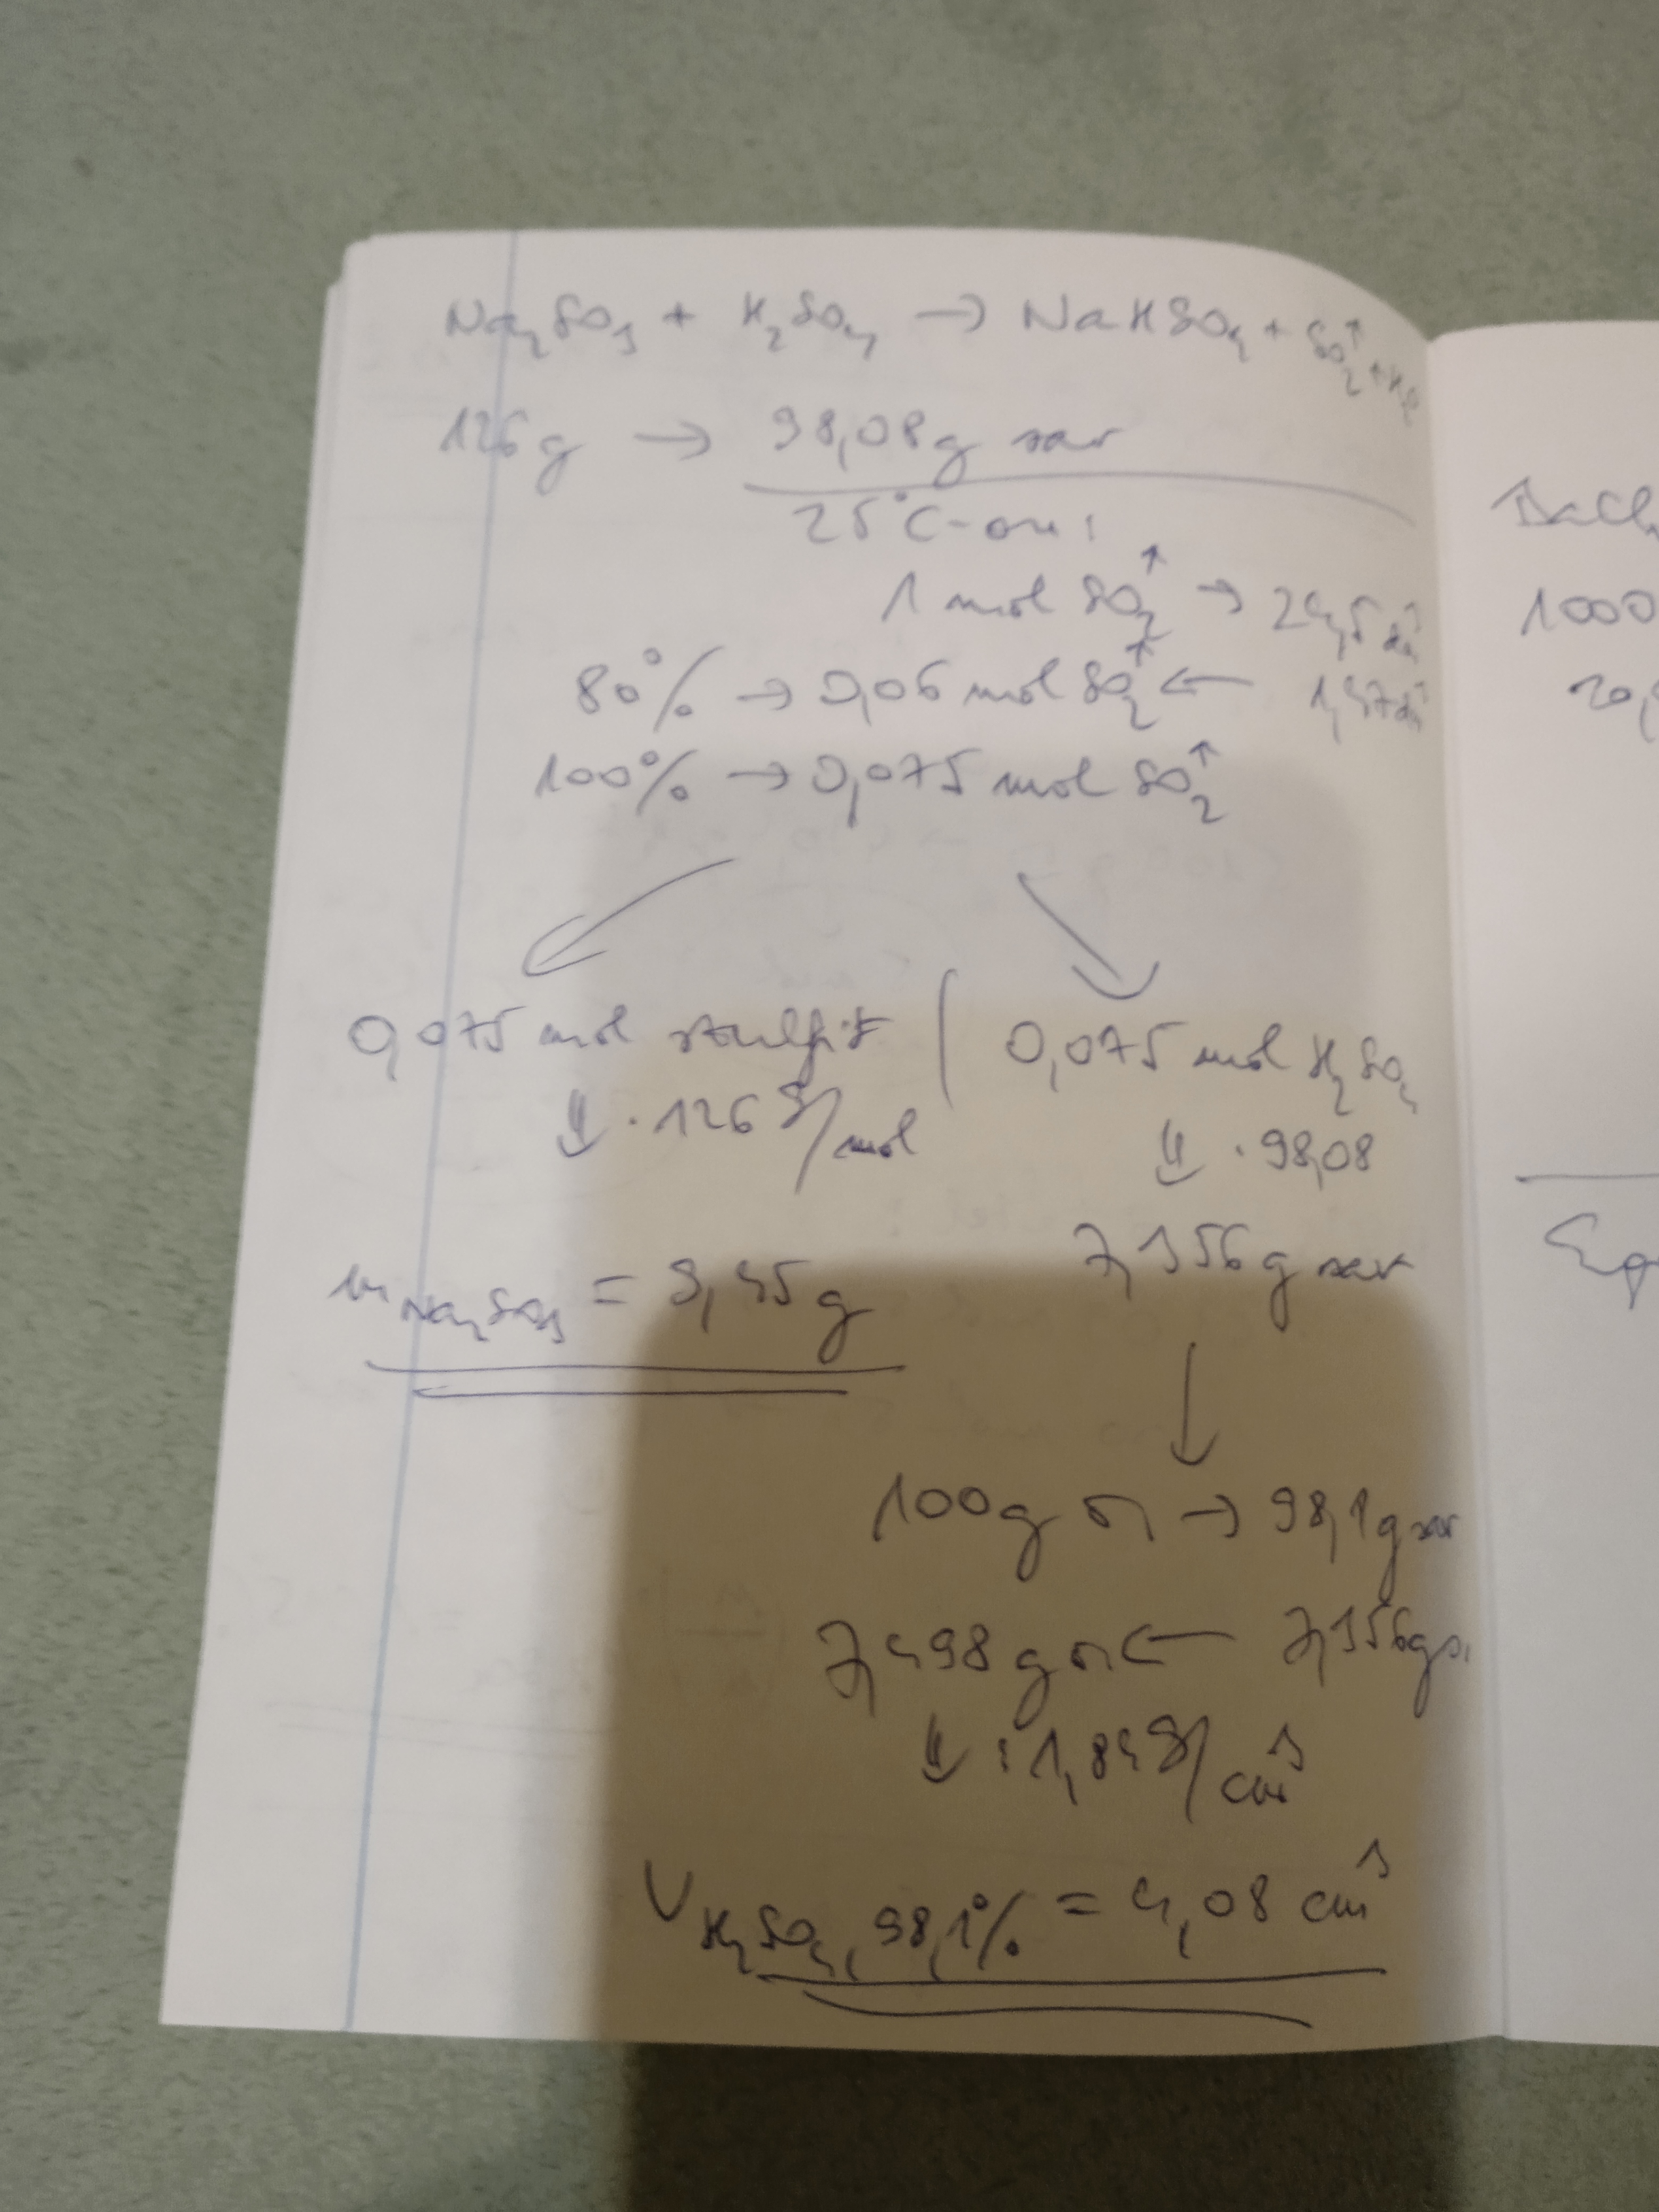 Na₂SO₃ + H₂SO₄ → NaHSO₄ + SO₂↑ + H₂O
126g → 98,08g sav
25°C-on:
1 mol SO₂↑ → 24,5 dm³
80% → 0,06 mol SO₂↑ ← 1,47 dm³
100% → 0,075 mol SO₂↑
0,075 mol szulfit | 0,075 mol H₂SO₄
⇓ · 126 g/mol
⇓ · 98,08
7,356g sav
m Na₂SO₃ = 9,45g
100g o. → 98,1g sav
7,498 g o. ← 7,356g s.
⇓ : 1,84 g/cm³
V H₂SO₄, 98,1% = 4,08 cm³
1000
20,